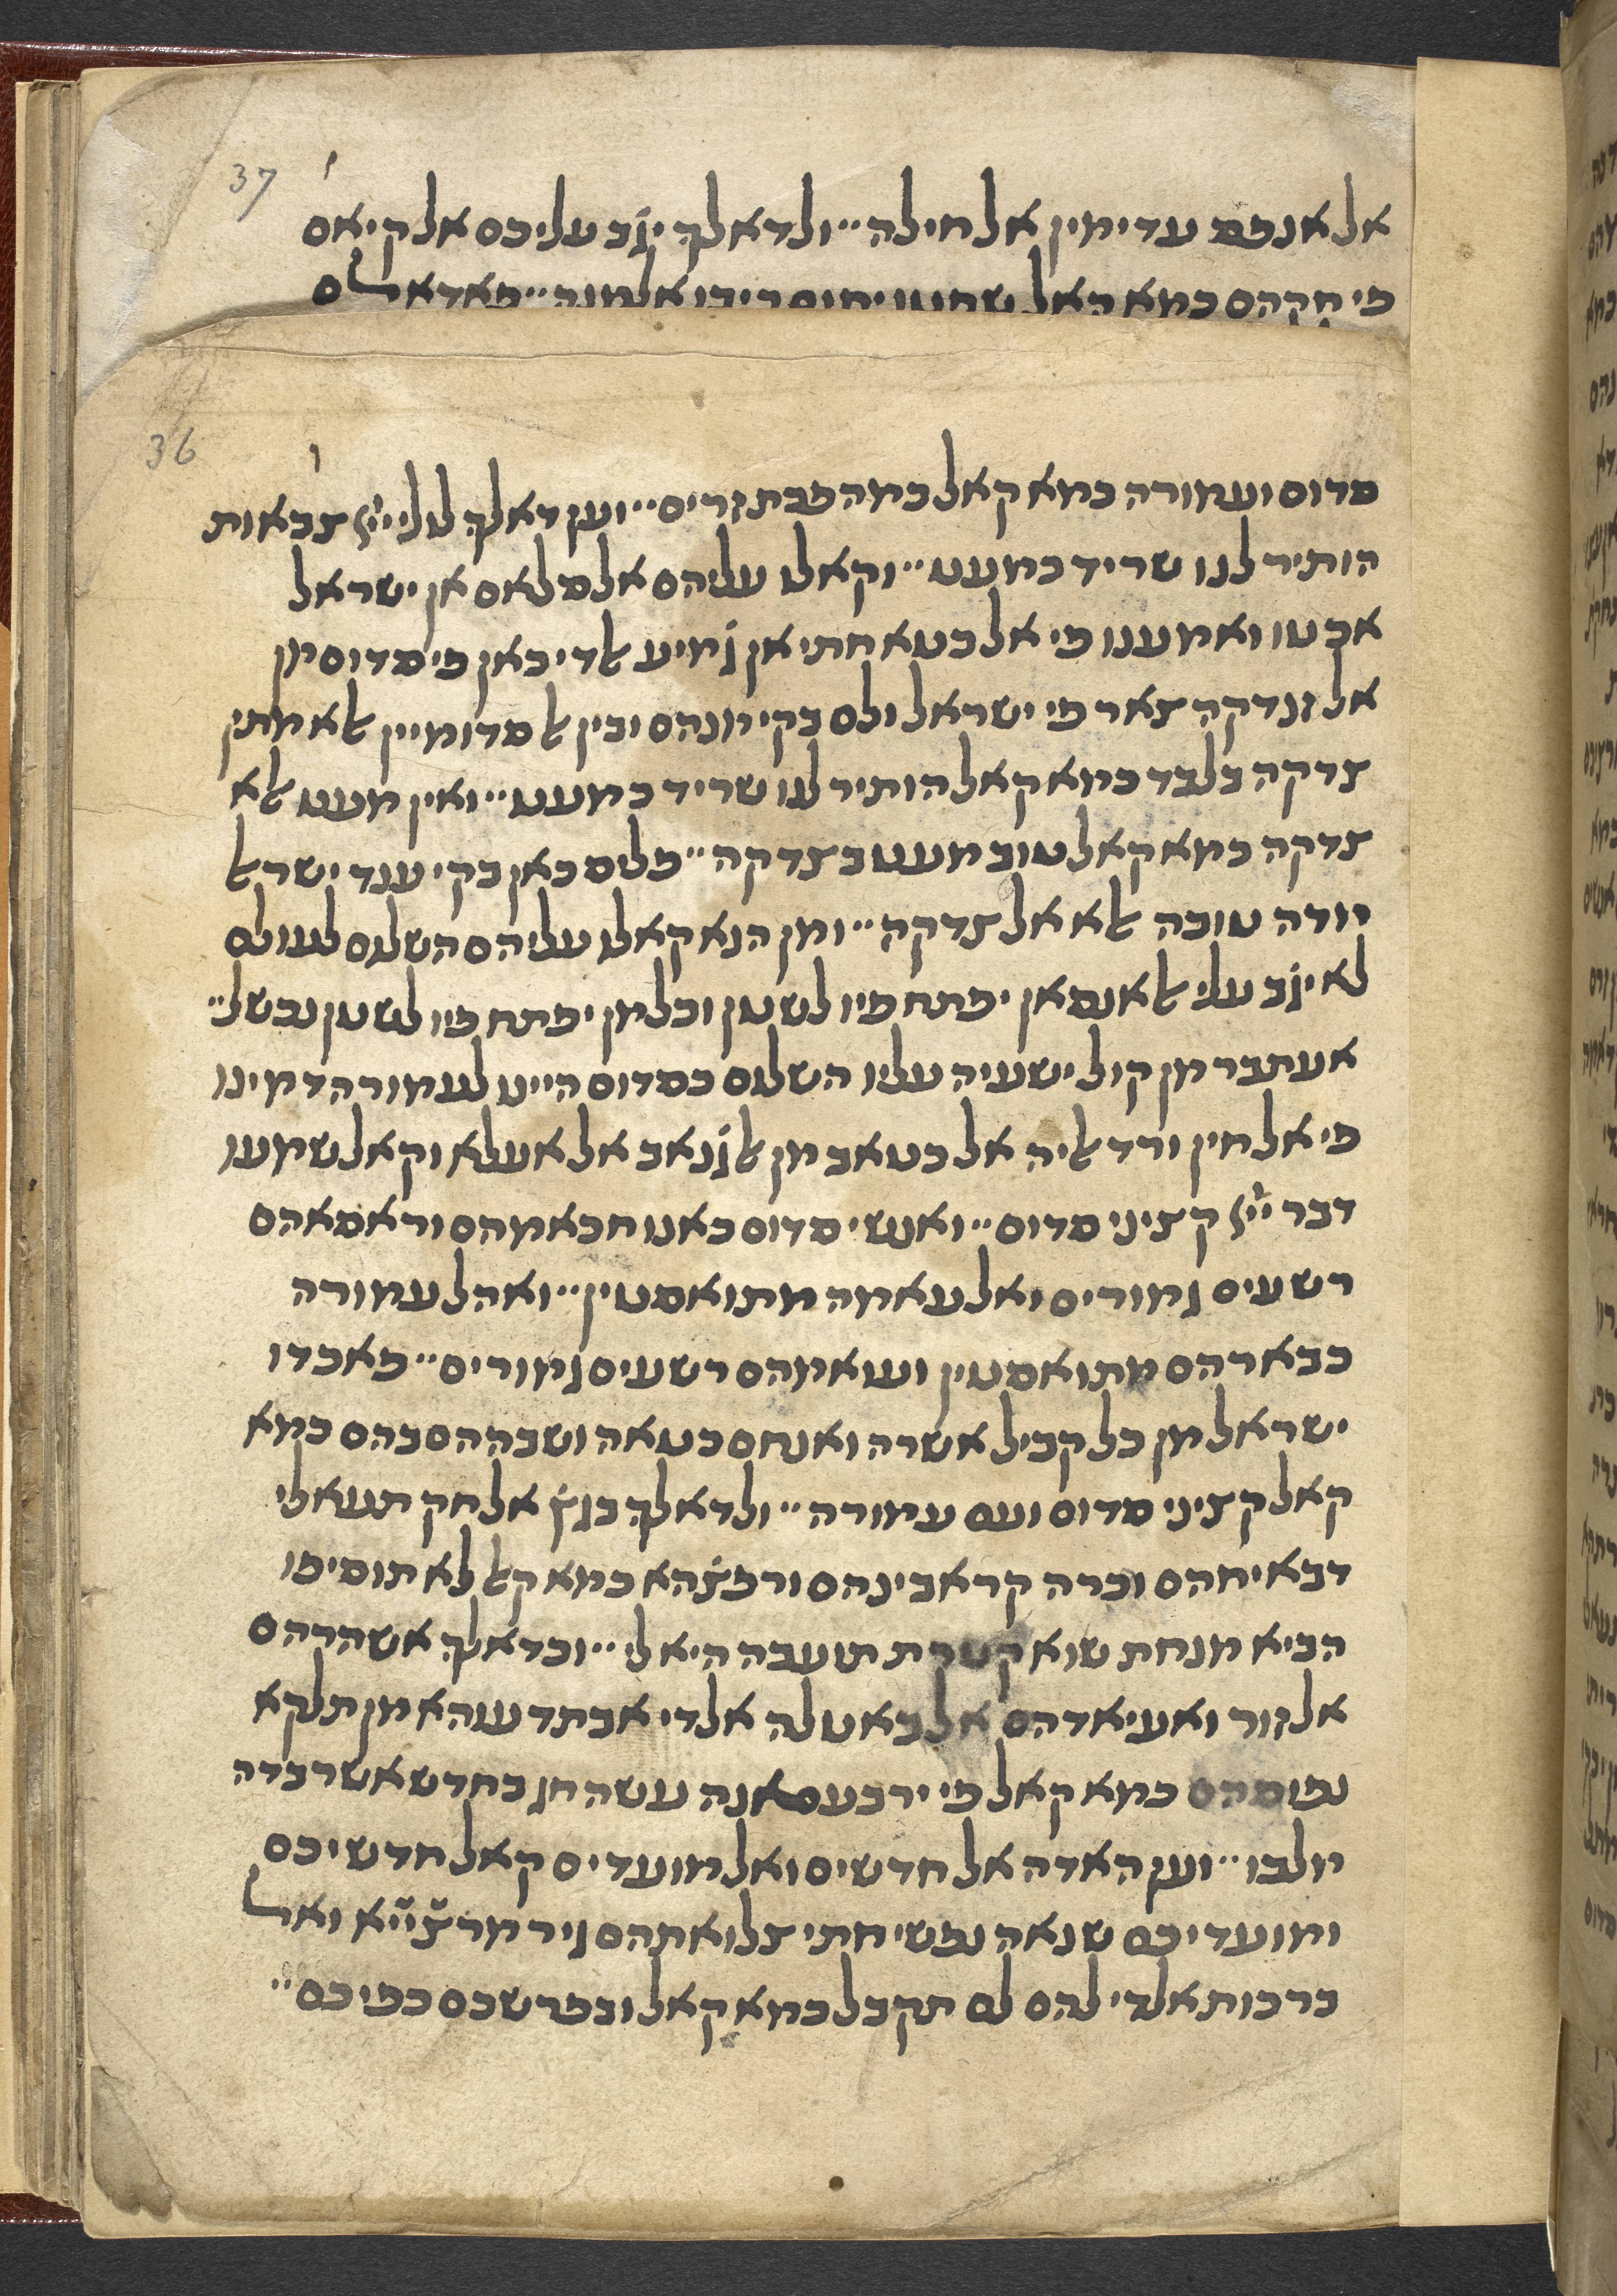 37
אלאנפס עדימין אלחילה״ ולדאלך יגׄב עליכם אלקיאם
פי חקהם כמא קאל שפטו יתום ריבו אלמנה״
36
סדום ועמורה כמא קאל כמהפכת זרים״ וען דאלך לולי ייי צבאות
הותיר לנו שריד כמעט״ וקאלו עליהם אלסלאם אן ישראל
אכטו ואמענו פי אלכטא חתי אן גׄמיע ﭏדי כאן פי סדום מן
אלזנדקה צאר פי ישראל ולם בקי בינהם ובין ﭏסדומיין ﭏא מתן
צדקה בלבד כמא קאל הותיר לנו שריד כמעט״ ואין מעט ﭏא
צדקה כמא קאל טוב מעט בצדקה״ פליס כאן בקי ענד ישרﭏ
מדה טובה ﭏא אלצדקה״ ומן הנא קאלו עליהם השלום לעולם
לא יגׄב עלי ﭏאנסאן יפתח פיו לשטן וכלמן יפתח פיו לשטן נכשל״
אעתבר מן קול ישעיה עליו השלום כסדום היינו לעמורה דמינו
פי אלחין ורד ﭏיה אלכטאב מן ﭏגׄנאב אלאעלא וקאל שמעו
דבר ייי קציני סדום״ ואנשי סדום כאנו חכאמהם וראסאהם
רשעים גמורים ואלעאמה מתואסטין״ ואהל עמורה
כבארהם מתואסטין ועואמהם רשעים גמורים״ פאכדו
ישראל מן כל קביל אשרה ואנחס כטאה ושבההם בהם כמא
קאל קציני סדום ועם עמורה״ ולדאלך בגץׄ אלחק תעאלי
דבאיחהם וכרה קראבינהם ורפצׄהא כמא קﭏ לא תוסיפו
הביא מנחת שוא קטרת תועבה היא לי״ וכדאלך אשהרהם
אלזור ואעיאדהם אלבאטלה אלדי אבתדעוהא מן תלקא
נפוסהם כמא קאל פי ירבעם אנה עשה חג בחדש אשר בדה
מלבו״ וען האדה אלחדשים ואלמועדים קאל חדשיכם
ומועדיכם שנאה נפשי חתי צלואתהם גיר מרצׄייא ואל
ברכות אלדי להם לם תקבל כמא קאל ובפרשכם כפיכם״